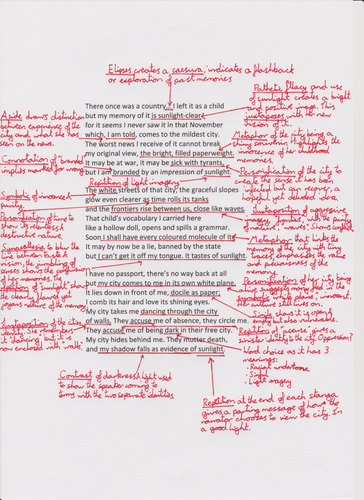 Ellipsis creates a caesura, indicates a flashback
or exploration of past memories
There once was a country... I left it as a child
but my memory of it is sunlight-clear
for it seems I never saw it in that November
which, I am told, comes to the mildest city.
The worst news I receive of it cannot break
my original view, the bright, filled paperweight.
It may be at war, it may be sick with tyrants,
but I am branded by an impression of sunlight.
Repetition of light imagery
The white streets of that city, the graceful slopes
glow even clearer as time rolls its tanks
and the frontiers rise between us, close like waves.
That child's vocabulary I carried here
like a hollow doll, opens and spills a grammar.
Soon I shall have every coloured molecule of it.
It may by now be a lie, banned by the state
but I can't get it off my tongue. It tastes of sunlight.
I have no passport, there's no way back at all
but my city comes to me in its own white plane.
It lies down in front of me, docile as paper;
I comb its hair and love its shining eyes.
My city takes me dancing through the city
of walls. They accuse me of absence, they circle me.
They accuse me of being dark in their free city.
My city hides behind me. They mutter death,
and my shadow falls as evidence of sunlight.
Aside draws distinction
between experiences of the
city and what she has
seen on the news.
Connotation of 'branded'
implies marked for wrong
Symbols of innocence +
purity.
Personification of time to
show its relentless &
destructive nature.
Synaesthesia to blur the
line between taste &
vision, the jumbling of
senses shows the jumbling
of her memories. The
Repetition of 'sunlight' shows
the clearly flawed yet
joyous nature of the memory
Juxtaposition of the cities
duality. She remembers
it 'dancing', but it is
now enclosed with 'walls'
Contrast of darkness & light used
to show the speaker coming to
terms with the two separate identities
Pathetic fallacy and use
of sunlight creates a bright
and positive image. This
juxtaposes with her new
vision of it.
Metaphor of the city being a
shiny souvenir. Highlights the
innocence of her childhood
memories.
Personification of the city to
create the sense it has been
infected but can recover, a
hopeful yet deluded idea.
Juxtaposition of aggressive
imagery, 'frontiers', with the purity
of nature, 'waves'. Shows conflict
Metaphor that links to
memories of the city with tiny
traces, emphasises the value
and preciousness of the
memory.
Personification of the city being
alive suggests among
symbolic white plane, innocent
the culture still lives on.
Simile shows it is open &
empty but also vulnerable.
Repetition of 'accuse' gives a
sinister duality to the city. Oppression?
Word choice as it has 3
meanings:
- Racial undertones
- Sight
- Light imagery
Repetition at the end of each stanza
gives a parting message of how the
narrator chooses to view the city. in
a good light.